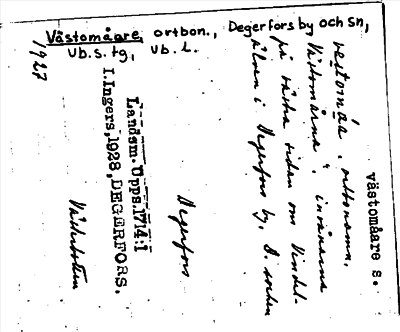 Västomåare, ortbon., Degerfors by och sn,
Vb.s.tg, Vb.l.
västomåare s.
västomåa, ortbonamn.
Västomårna, invånarna
på västra sidan om Vindel-
älven i Degerfors by, D. socken
Degerfors
Västerbotten
Landsm. Upps. 1714:1
I.Ingers, 1928, DEGERFORS.
1927